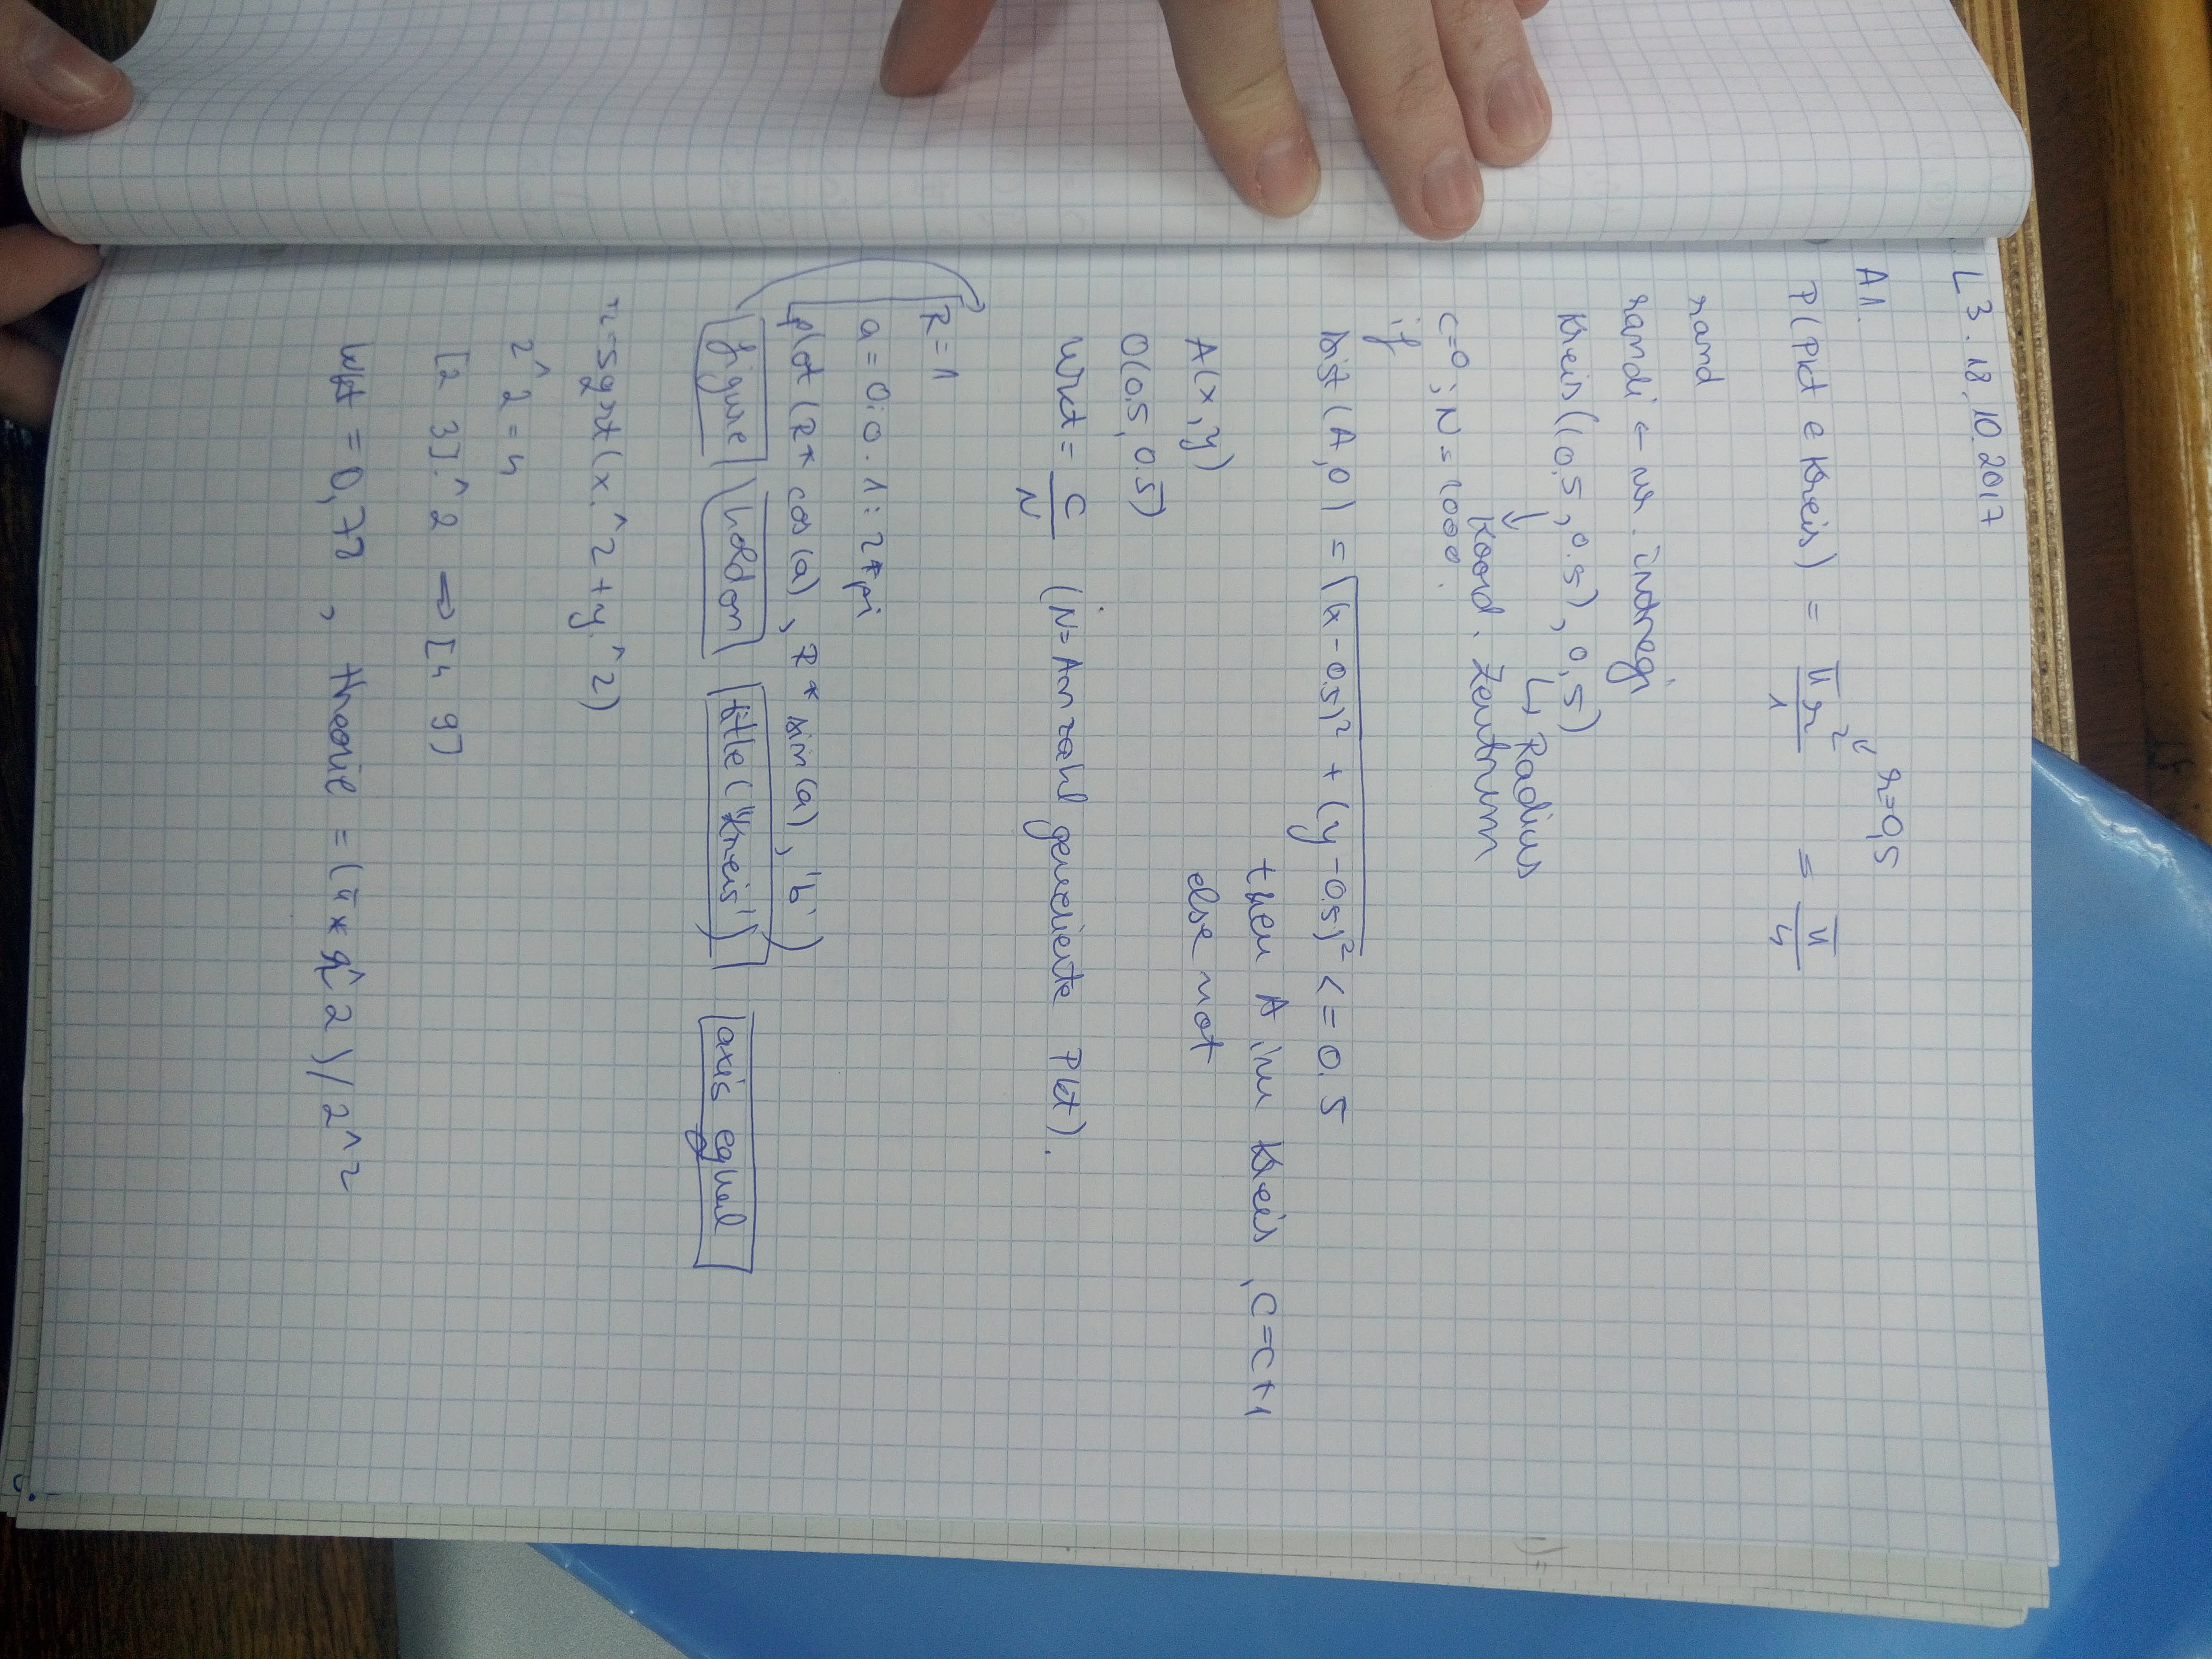 L 3. 18.10.2017
A1.
r=0,5
P(Pkt ∈ Kreis) = πr²/1 = π/4
rand
randi ← nr. intregi
Kreis((0.5, 0.5), 0,5)
↳ Radius
↓
Koord. Zentrum
c=0; N=1000.
if
dist(A,O) = √(x-0.5)² + (y-0.5)² <= 0.5
then A im Kreis, c=c+1
A(x,y) else not
O(0.5, 0.5)
Wkt = C/N (N=Anzahl generierte Pkt).
R=1
a = 0:0.1:2*pi
plot(R*cos(a), R*sin(a), 'b')
figure hold on title('Kreis') axis equal
r=sqrt(x.^2+y.^2)
2^2=4
[2 3].^2 ⇒ [4 9]
Wkt = 0,78, theorie = (π*r^2)/2^2